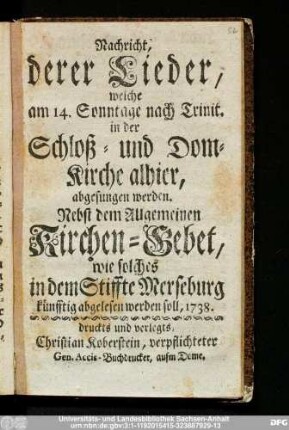 Nachricht,
derer Lieder,
welche
am 14. Sonntage nach Trinit.
in der
Schloß- und Dom-
Kirche alhier,
abgesungen werden.
Nebst dem Allgemeinen
Kirchen-Gebet,
wie solches
in dem Stiffte Merseburg
künfftig abgelesen werden soll, 1738.
druckts und verlegts,
Christian Koberstein, verpflichteter
Gen. Accis-Buchdrucker, aufm Dome.
Universitäts- und Landesbibliothek Sachsen-Anhalt
urn:nbn:de:gbv:3:1-1192015415-323687929-13
DFG